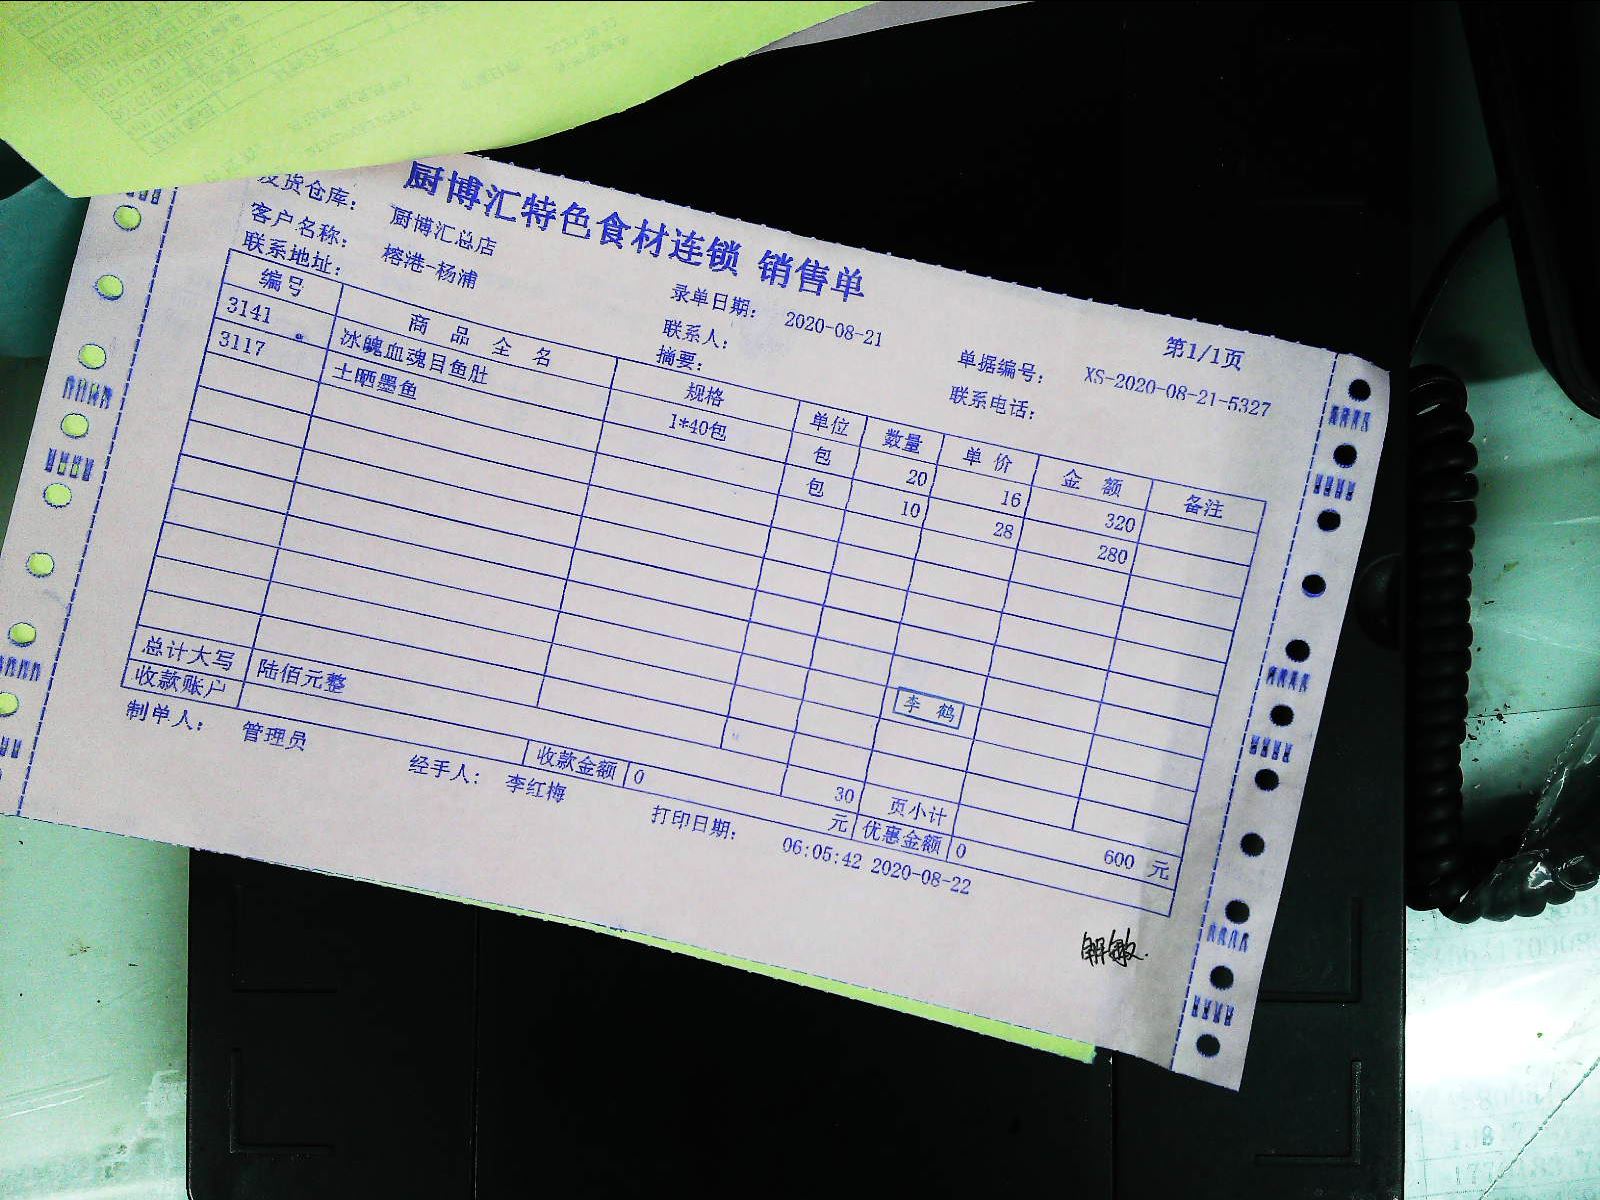 厨博汇特色食材连锁 销售单
第1/1页
发货仓库: 厨博汇总店 录单日期: 2020-08-21 单据编号: XS-2020-08-21-5327
客户名称: 榕港-杨浦 联系人: 联系电话:
联系地址: 摘要:
编号 商品全名 规格 单位 数量 单价 金额 备注
3141 冰魄血魂目鱼肚 1*40包 包 20 16 320
3117 土晒墨鱼 包 10 28 280
李鹤
30 页小计 600 元
总计大写 陆佰元整
收款账户 收款金额 0 元 优惠金额 0
制单人: 管理员 经手人: 李红梅 打印日期: 06:05:42 2020-08-22